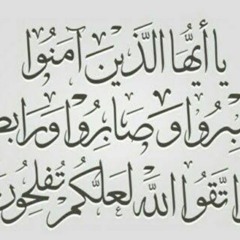 يَا أَيُّهَا الَّذِينَ آمَنُوا
بِرُوا وَصَابِرُوا وَرَابِط
اتَّقُوا اللَّهَ لَعَلَّكُمْ تُفْلِحُونَ